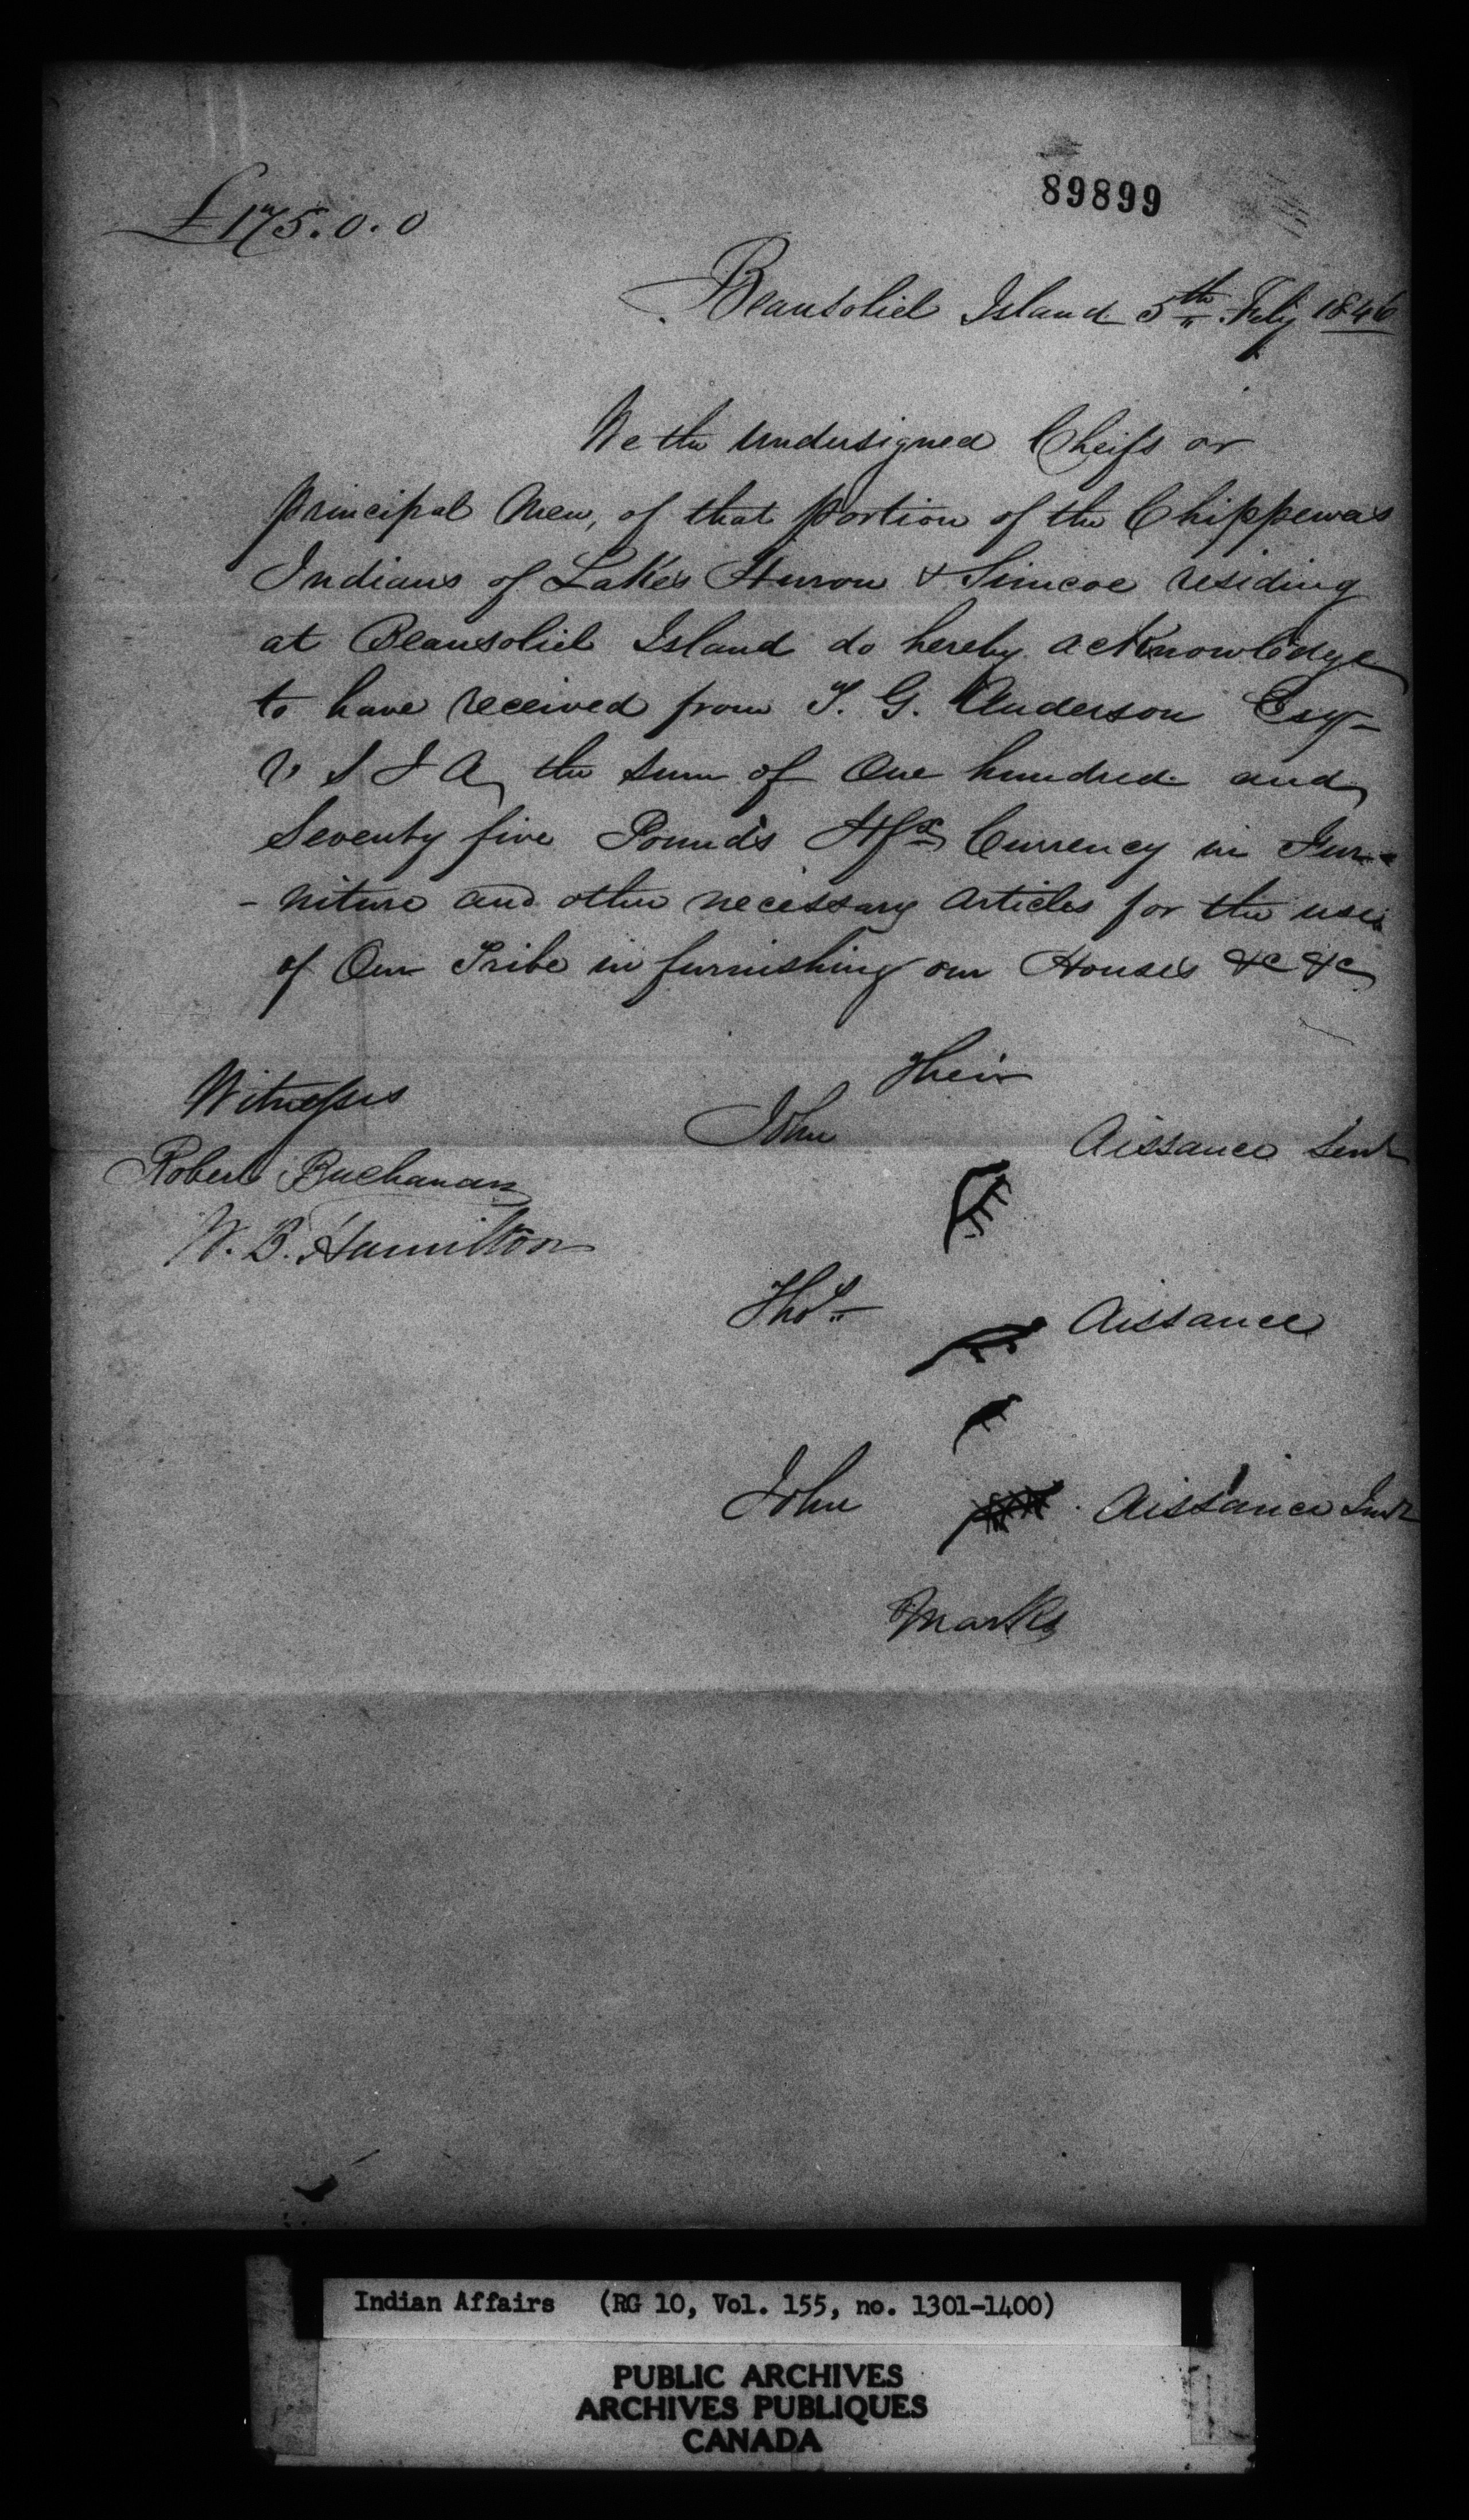 89899
£175.0.0
Beausoliel Island 5th July 1846
We the undersigned Cheifs or
principal Men, of that portion of the Chippewas
Indians of Lakes Huron & Simcoe residing
at Beausoliel Island do hereby acknowledge
to have received from T. G. Anderson Esqr
V S I A, the sum of One hundred and
Seventy five Pounds Hfx Currency in Fur-
-niture and other necessary articles for the use
of Our Tribe in furnishing our Houses &c &c
Their
Witnesses
John Aissance Senr
Robert Buchanan
W. B. Hamilton
Thos Aissance
John Aissance Junr
Marks
Indian Affairs (RG 10, Vol. 155, no. 1301-1400)
PUBLIC ARCHIVES
ARCHIVES PUBLIQUES
CANADA